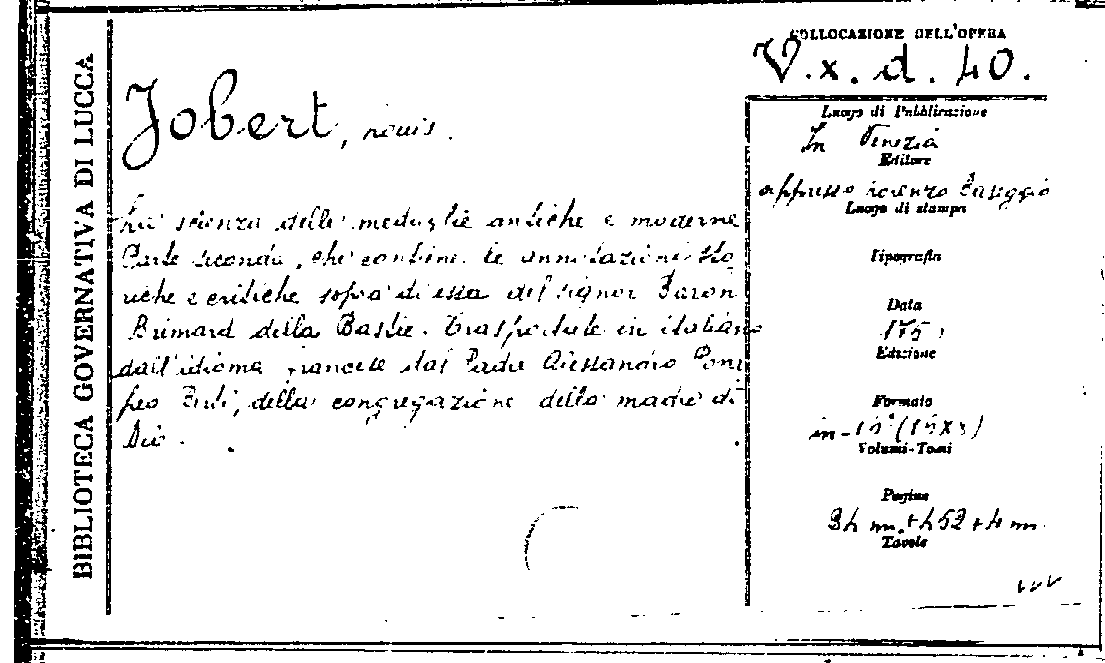 BIBLIOTECA GOVERNATIVA DI LUCCA
COLLOCAZIONE DELL'OPERA
V.x.d.40.
Jobert, Louis.
La scienza delle medaglie antiche e moderne
Parte seconda, che contiene le annotazioni sto
riche e critiche sopra di essa del signor Baron
Bimard della Bastie. Trasportate in italiano
dall'idioma francese dal Padre Alessandro Pom
peo Berti, della congregazione della madre di
Dio.
Luogo di Pubblicazione
In Venezia
Editore
appresso Lorenzo Baseggio
Luogo di stampa
Tipografia
Data
Edizione
Formato
Volumi-Tomi
Pagine
Tavole